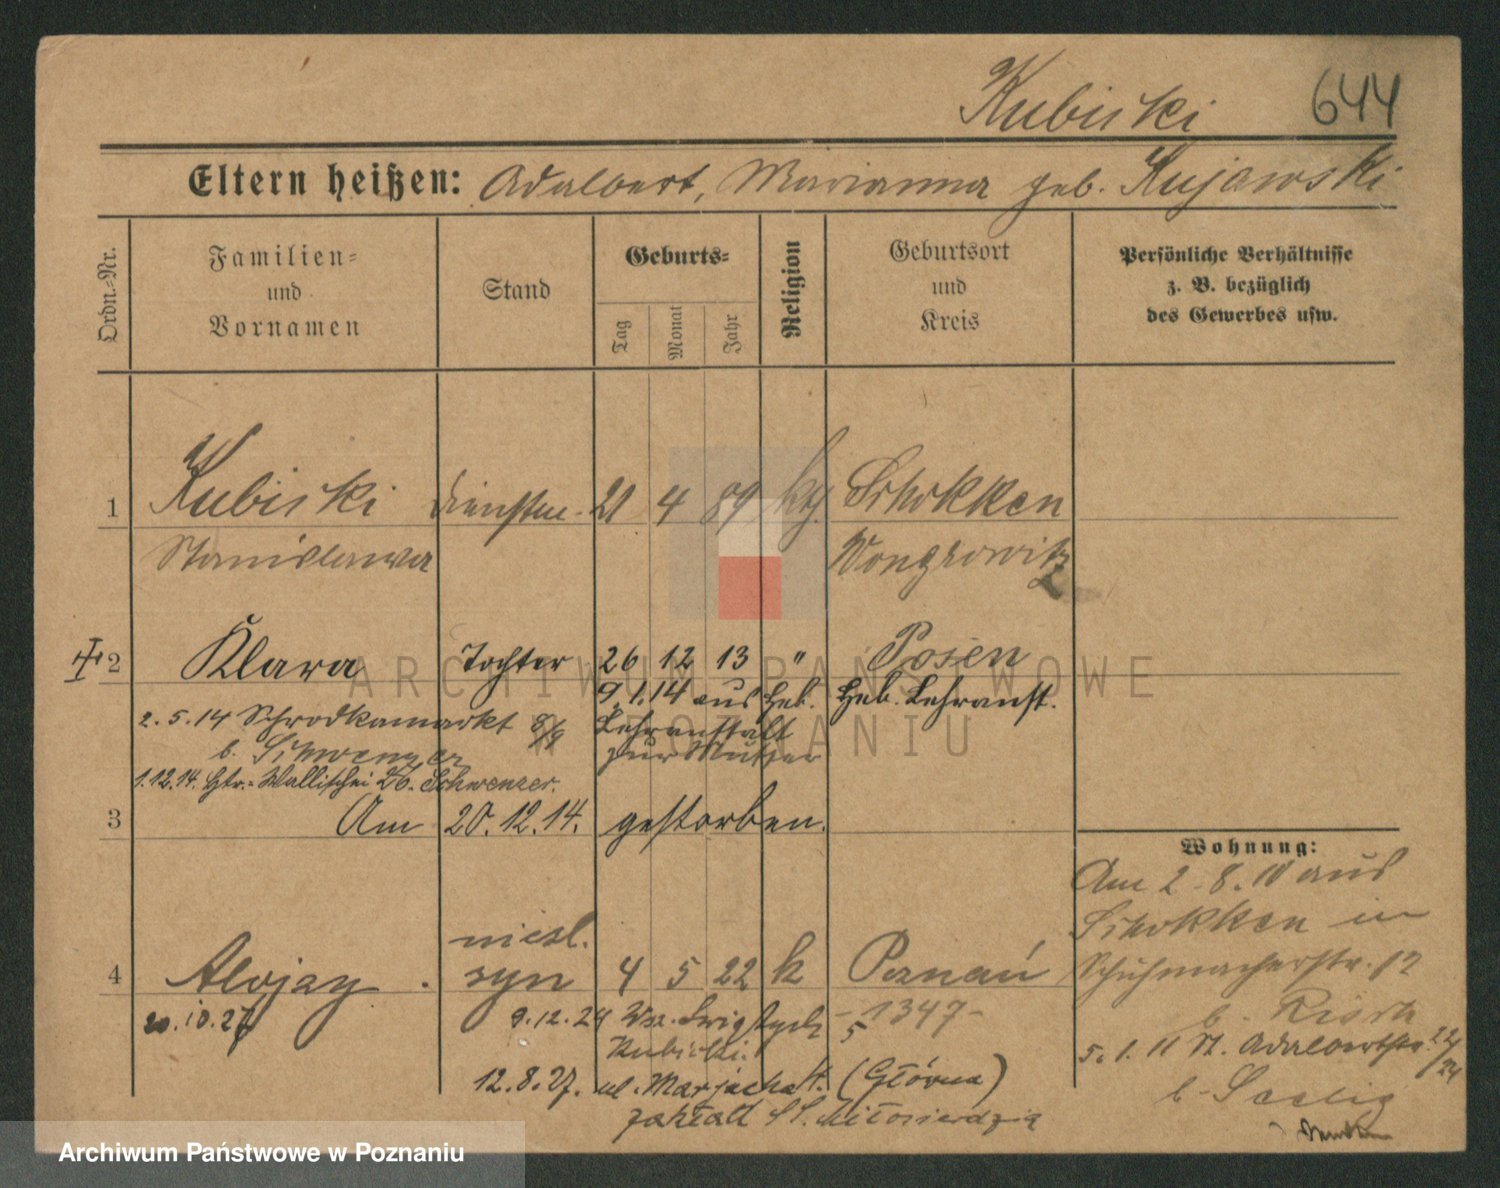 Kubiski 644
Eltern heißen: Adalbert, Marianna geb. Kujawski
Ordn.-Nr.
Familien-
und
Vornamen
Stand
Geburts-
Tag
Monat
Jahr
Religion
Geburtsort
und
Kreis
Persönliche Verhältnisse
z. B. bezüglich
des Gewerbes usw.
1 Kubiski 21 4 89 kth. Schokken
Stanislawa Wongrowitz
2 Klara Tochter 26 12 13 " Posen
9.1.14 aus Heb. Heb. Lehranst.
2.5.14 Schrodkamarkt 8/9 Lehranstalt
b. Schwenzer zur Mutter
1.12.14. Htr.-Wallischei 26. Schwenzer.
3 Am 20.12.14. gestorben.
Wohnung:
Am 2.8.10 aus
Schokken in
Schuhmacherstr. 12
b.
5.1.11 St. Adalbertstr. 22/24
b.
nieśl.
4 Alojzy. syn 4 5 22 k Poznań
20.10.27 9.12.24 -1347-
Kubiski. 5
12.8.27. ul. Marjacka (Główna)
zakład SS. Miłosierdzia
ARCHIWUM PAŃSTWOWE
W POZNANIU
Archiwum Państwowe w Poznaniu